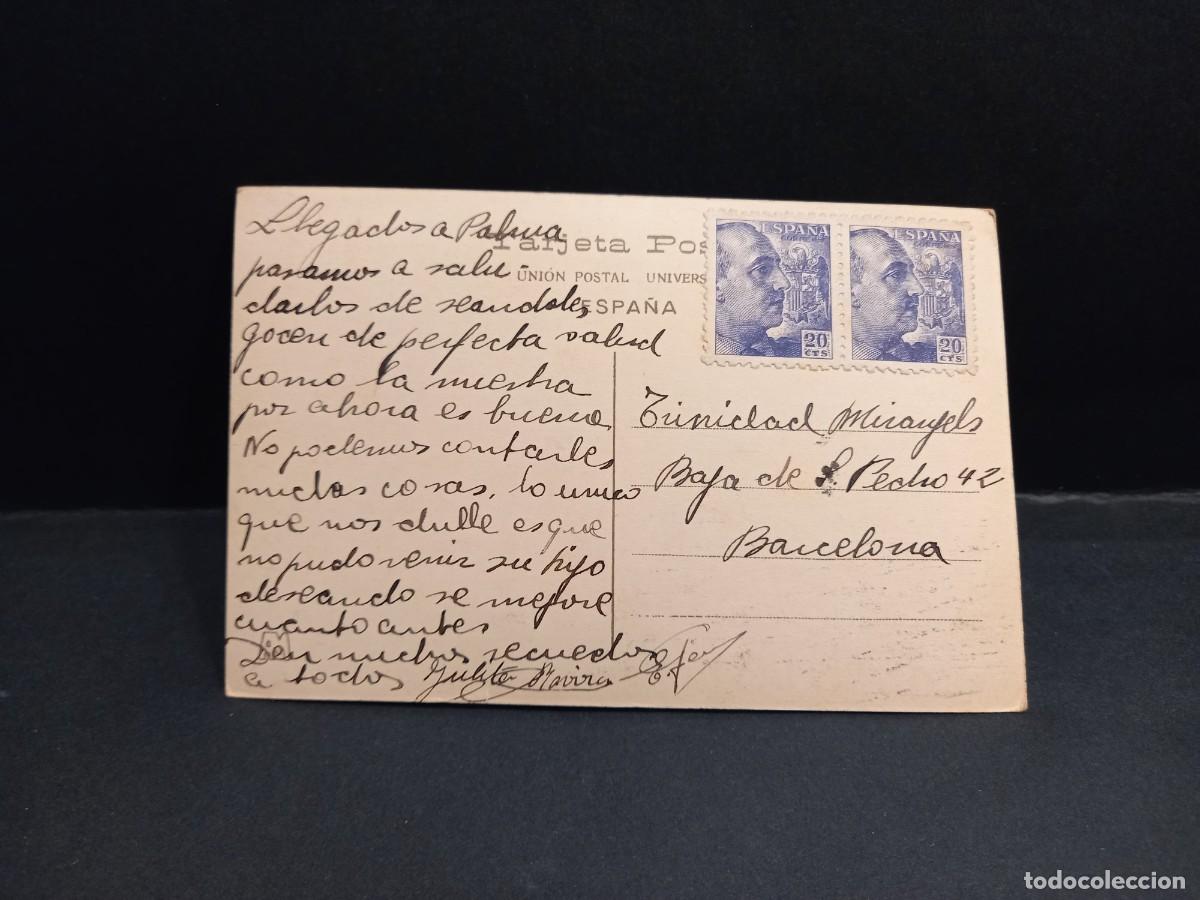 Llegados a Palma
pasamos a salu-
darlos de seandoles
gocen de perfecta salud
como la nuestra
por ahora es buena
No podemos contarles
muchas cosas, lo unico
que nos dulle es que
no pudo venir su hijo
deseando se mejore
cuanto antes
Den muchos recuedos
a todos
Julita Rovira
Tarjeta Pos
UNIÓN POSTAL UNIVERS
ESPAÑA
ESPAÑA
CORREOS
20
CTS
ESPAÑA
20
CTS
Trinidad Mirangels
Baja de S. Pedro 42
Barcelona
todocoleccion